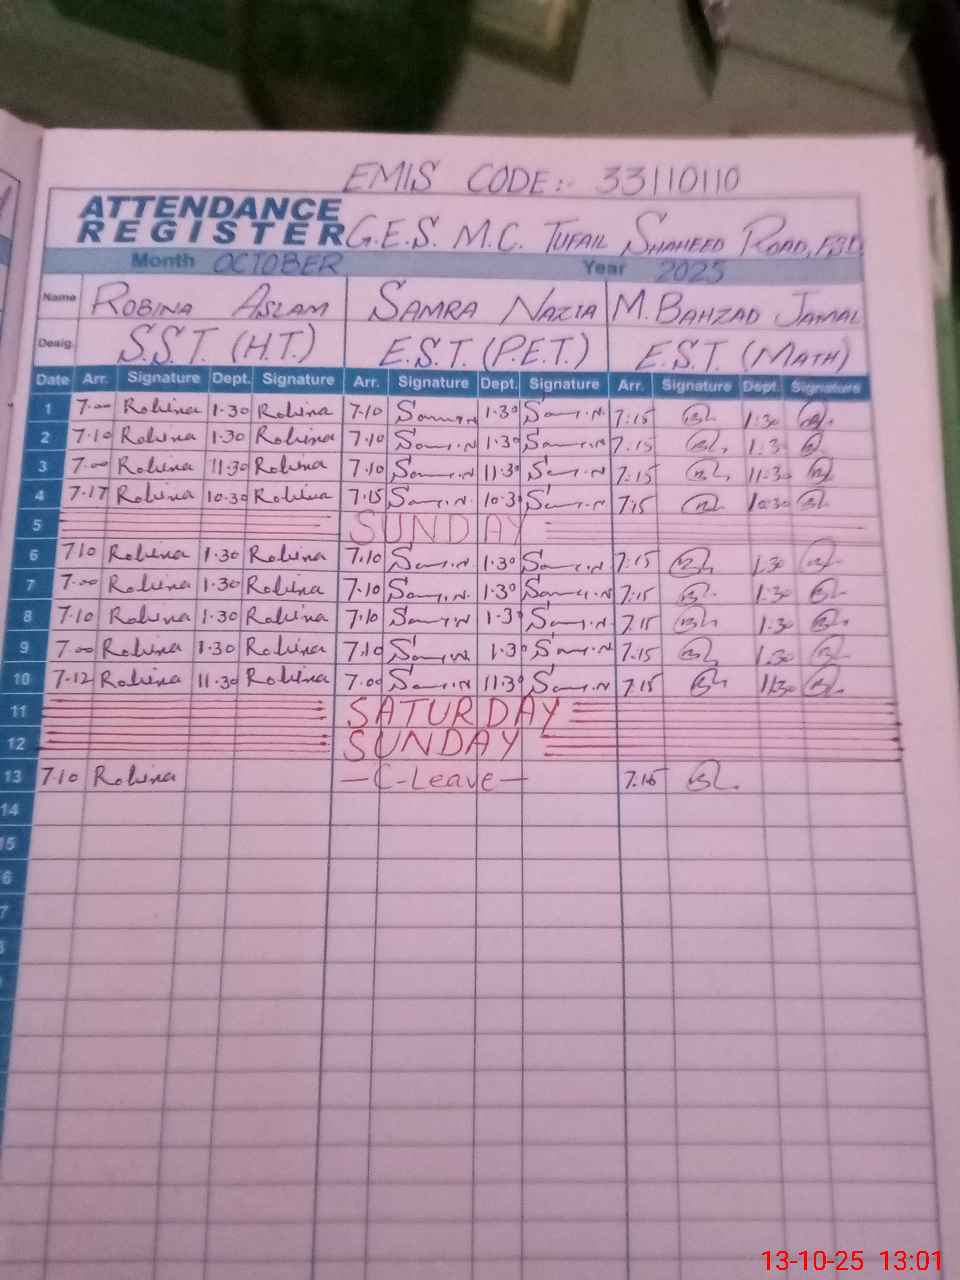 EMIS CODE:- 33110110
ATTENDANCE
REGISTER G.E.S. M.C. TUFAIL SHAHEED ROAD, FSD
Month OCTOBER Year 2025
Name ROBINA ASLAM SAMRA NAZIA M. BAHZAD JAMAL
Desig. S.S.T. (H.T.) E.S.T. (P.E.T.) E.S.T. (MATH)
Date Arr. Signature Dept. Signature Arr. Signature Dept. Signature Arr. Signature Dept. Signature
1 7.00 Robina 1.30 Robina 7.10 1.30 7:15 1:30
2 7.10 Robina 1.30 Robina 7.10 1.30 7.15 1.30
3 7.00 Robina 11.30 Robina 7.10 11.30 7:15 11.30
4 7.17 Robina 10.30 Robina 7.15 10.30 7.15 10.30
5 SUNDAY
6 7.10 Robina 1.30 Robina 7.10 1.30 7:15 1.30
7 7.00 Robina 1.30 Robina 7.10 1.30 7.15 1.30
8 7.10 Robina 1.30 Robina 7.10 1.30 7.15 1.30
9 7.00 Robina 1.30 Robina 7.10 1.30 7.15 1.30
10 7.12 Robina 11.30 Robina 7.00 11.30 7.15 11.30
11 SATURDAY
12 SUNDAY
13 7.10 Robina —C-Leave— 7.15
14
15
6
7
13-10-25 13:01